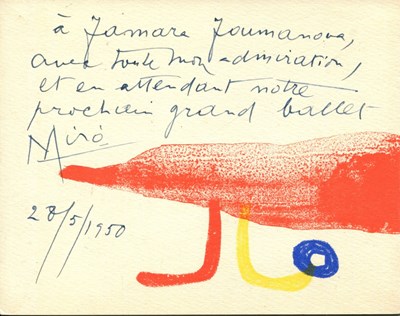 à Tamara Toumanova,
avec toute mon admiration,
et en attendant notre
prochein grand ballet
Miró
28/5/1950